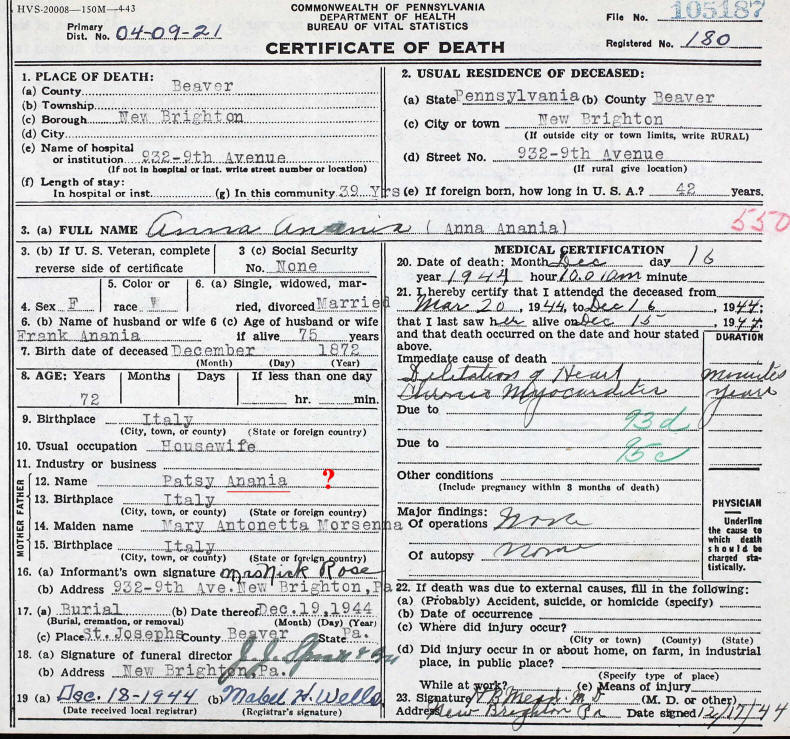 HVS-20008—150M—4-43
COMMONWEALTH OF PENNSYLVANIA
DEPARTMENT OF HEALTH
BUREAU OF VITAL STATISTICS
File No. 105187
Primary Dist. No. 04-09-21
CERTIFICATE OF DEATH
Registered No. 180
1. PLACE OF DEATH:
(a) County Beaver
(b) Township
(c) Borough New Brighton
(d) City
(e) Name of hospital
or institution 932-9th Avenue
(If not in hospital or inst. write street number or location)
(f) Length of stay:
In hospital or inst. (g) In this community 39 Yrs
2. USUAL RESIDENCE OF DECEASED:
(a) State Pennsylvania (b) County Beaver
(c) City or town New Brighton
(If outside city or town limits, write RURAL)
(d) Street No. 932-9th Avenue
(If rural give location)
(e) If foreign born, how long in U. S. A.? 42 years.
3. (a) FULL NAME Anna Anania (Anna Anania)
550
3. (b) If U. S. Veteran, complete
reverse side of certificate
3 (c) Social Security
No. None
4. Sex F
5. Color or
race W
6. (a) Single, widowed, mar-
ried, divorced Married
6. (b) Name of husband or wife
Frank Anania
6 (c) Age of husband or wife
if alive 75 years
7. Birth date of deceased December 1872
(Month) (Day) (Year)
8. AGE: Years Months Days If less than one day
72 hr. min.
9. Birthplace Italy
(City, town, or county) (State or foreign country)
10. Usual occupation Housewife
11. Industry or business
FATHER
12. Name Patsy Anania ?
13. Birthplace Italy
(City, town, or county) (State or foreign country)
MOTHER
14. Maiden name Mary Antonetta Morsenna
15. Birthplace Italy
(City, town, or county) (State or foreign country)
16. (a) Informant's own signature Mrs Nick Rose
(b) Address 932-9th Ave. New Brighton, Pa
17. (a) Burial (b) Date thereof Dec. 19, 1944
(Burial, cremation, or removal) (Month) (Day) (Year)
(c) Place St. Josephs County Beaver State Pa.
18. (a) Signature of funeral director J. J.
(b) Address New Brighton, Pa.
19 (a) Dec. 18-1944 (b) Mabel H. Wells
(Date received local registrar) (Registrar's signature)
MEDICAL CERTIFICATION
20. Date of death: Month Dec day 16
year 1944 hour 10.01 am minute
21. I hereby certify that I attended the deceased from
Mar 20, 1944, to Dec 16, 1944;
that I last saw her alive on Dec 15, 1944;
and that death occurred on the date and hour stated
above.
DURATION
Immediate cause of death
Dilitation of Heart minutes
Chronic Myocarditis years
Due to 93d
Due to 95c
Other conditions
(Include pregnancy within 3 months of death)
Major findings:
Of operations None
Of autopsy None
PHYSICIAN
Underline
the cause to
which death
should be
charged sta-
tistically.
22. If death was due to external causes, fill in the following:
(a) (Probably) Accident, suicide, or homicide (specify)
(b) Date of occurrence
(c) Where did injury occur?
(City or town) (County) (State)
(d) Did injury occur in or about home, on farm, in industrial
place, in public place?
(Specify type of place)
While at work? (e) Means of injury
23. Signature Mead M.D. (M. D. or other)
Address New Brighton Pa Date signed 12/17/44